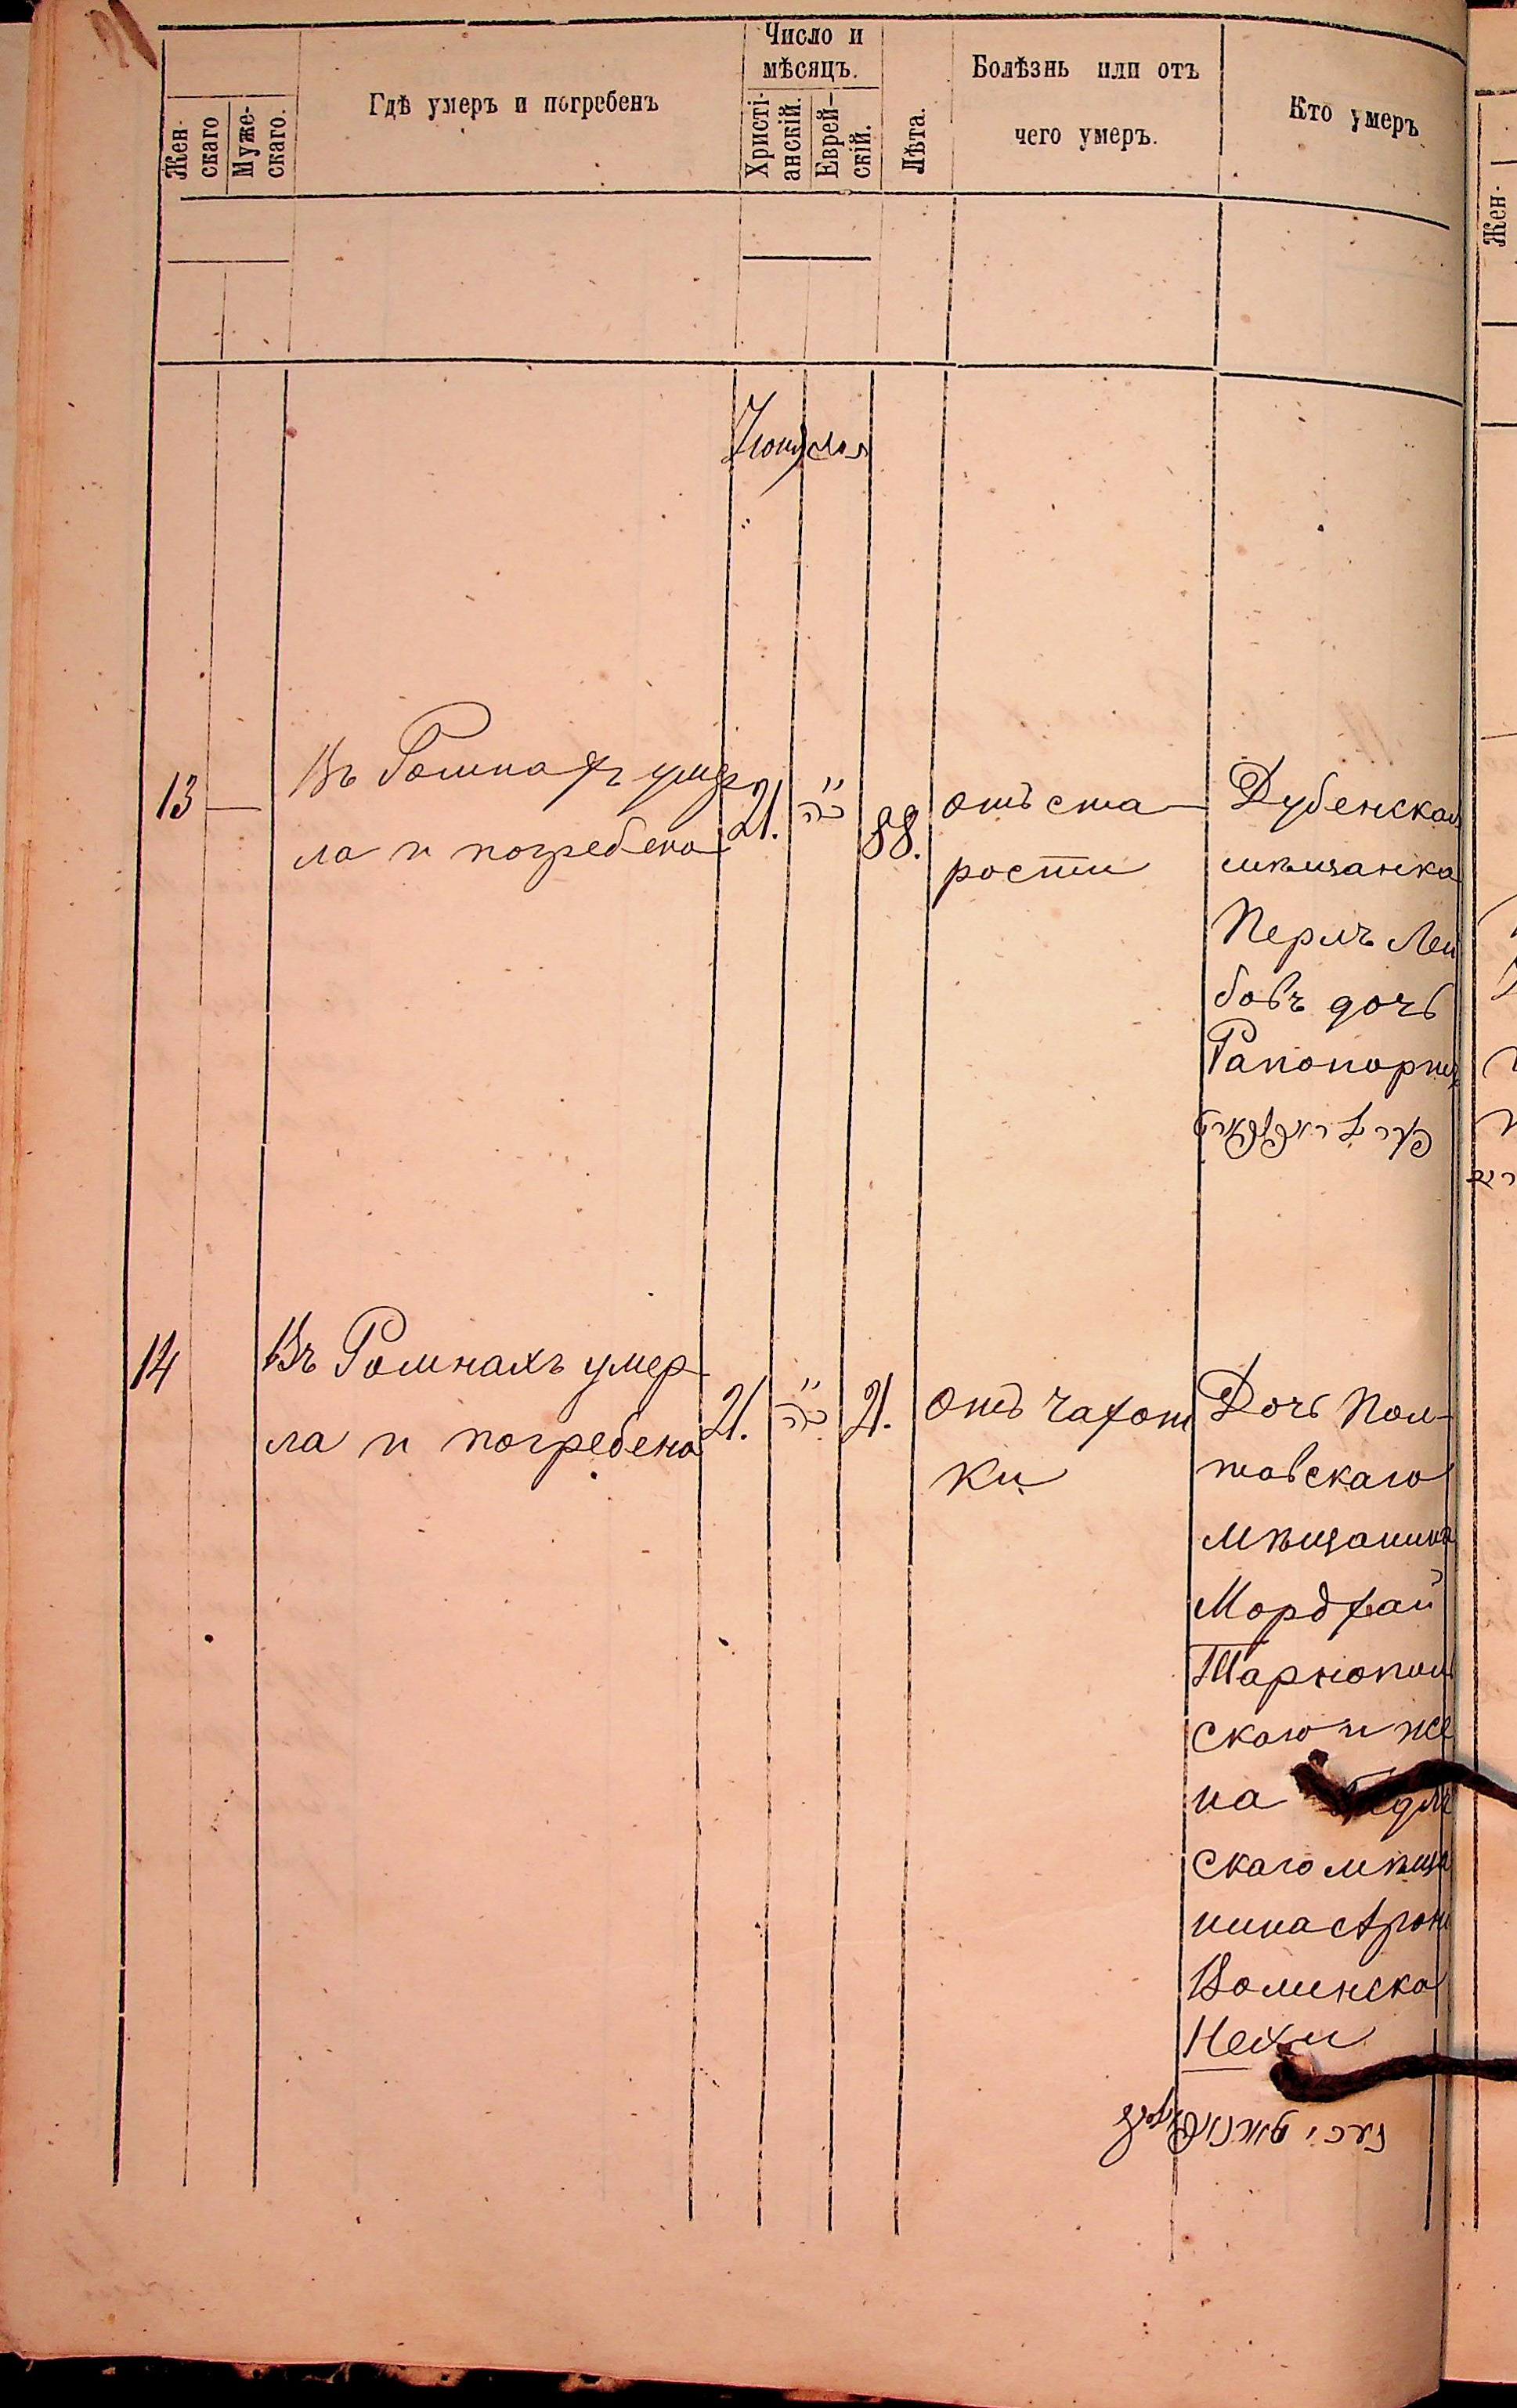 Жен-
скаго
Муже-
скаго.
Гдѣ умеръ и погребенъ
Число и
мѣсяцъ.
Христі-
анскій.
Еврей-
скій.
Лѣта.
Болѣзнь или отъ
чего умеръ.
Кто умеръ
Жен-
13 —
Въ Ромнахъ умер
ла и погребена
21.
88.
отъ ста-
рости
Дубенская
мѣщанка
Перлъ Лей
бовъ дочь
Рапопортъ
14
Въ Ромнахъ умер-
ла и погребена
21.
21.
отъ чахот
ки
Дочь Пол-
тавскаго
мѣщанина
Мордхай
Тарнополь
скаго и же
на
скаго мѣща
нина Арона
Волинска
Нехи